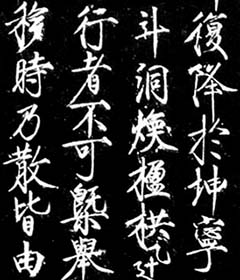 復降於坤寧
斗洞煥楹栱
行者不可槩舉
移時乃散皆由